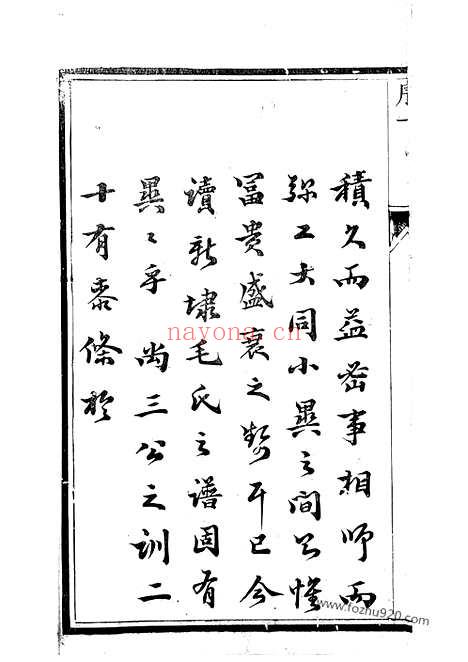 序一
積久而益密事相師而
弥工大同小異之間只惟
冨貴盛衰之勢耳已今
讀新埭毛氏之譜固有
異乎尚三公之訓二
十有泰條於
nayong.cn
www.fozhu920.com